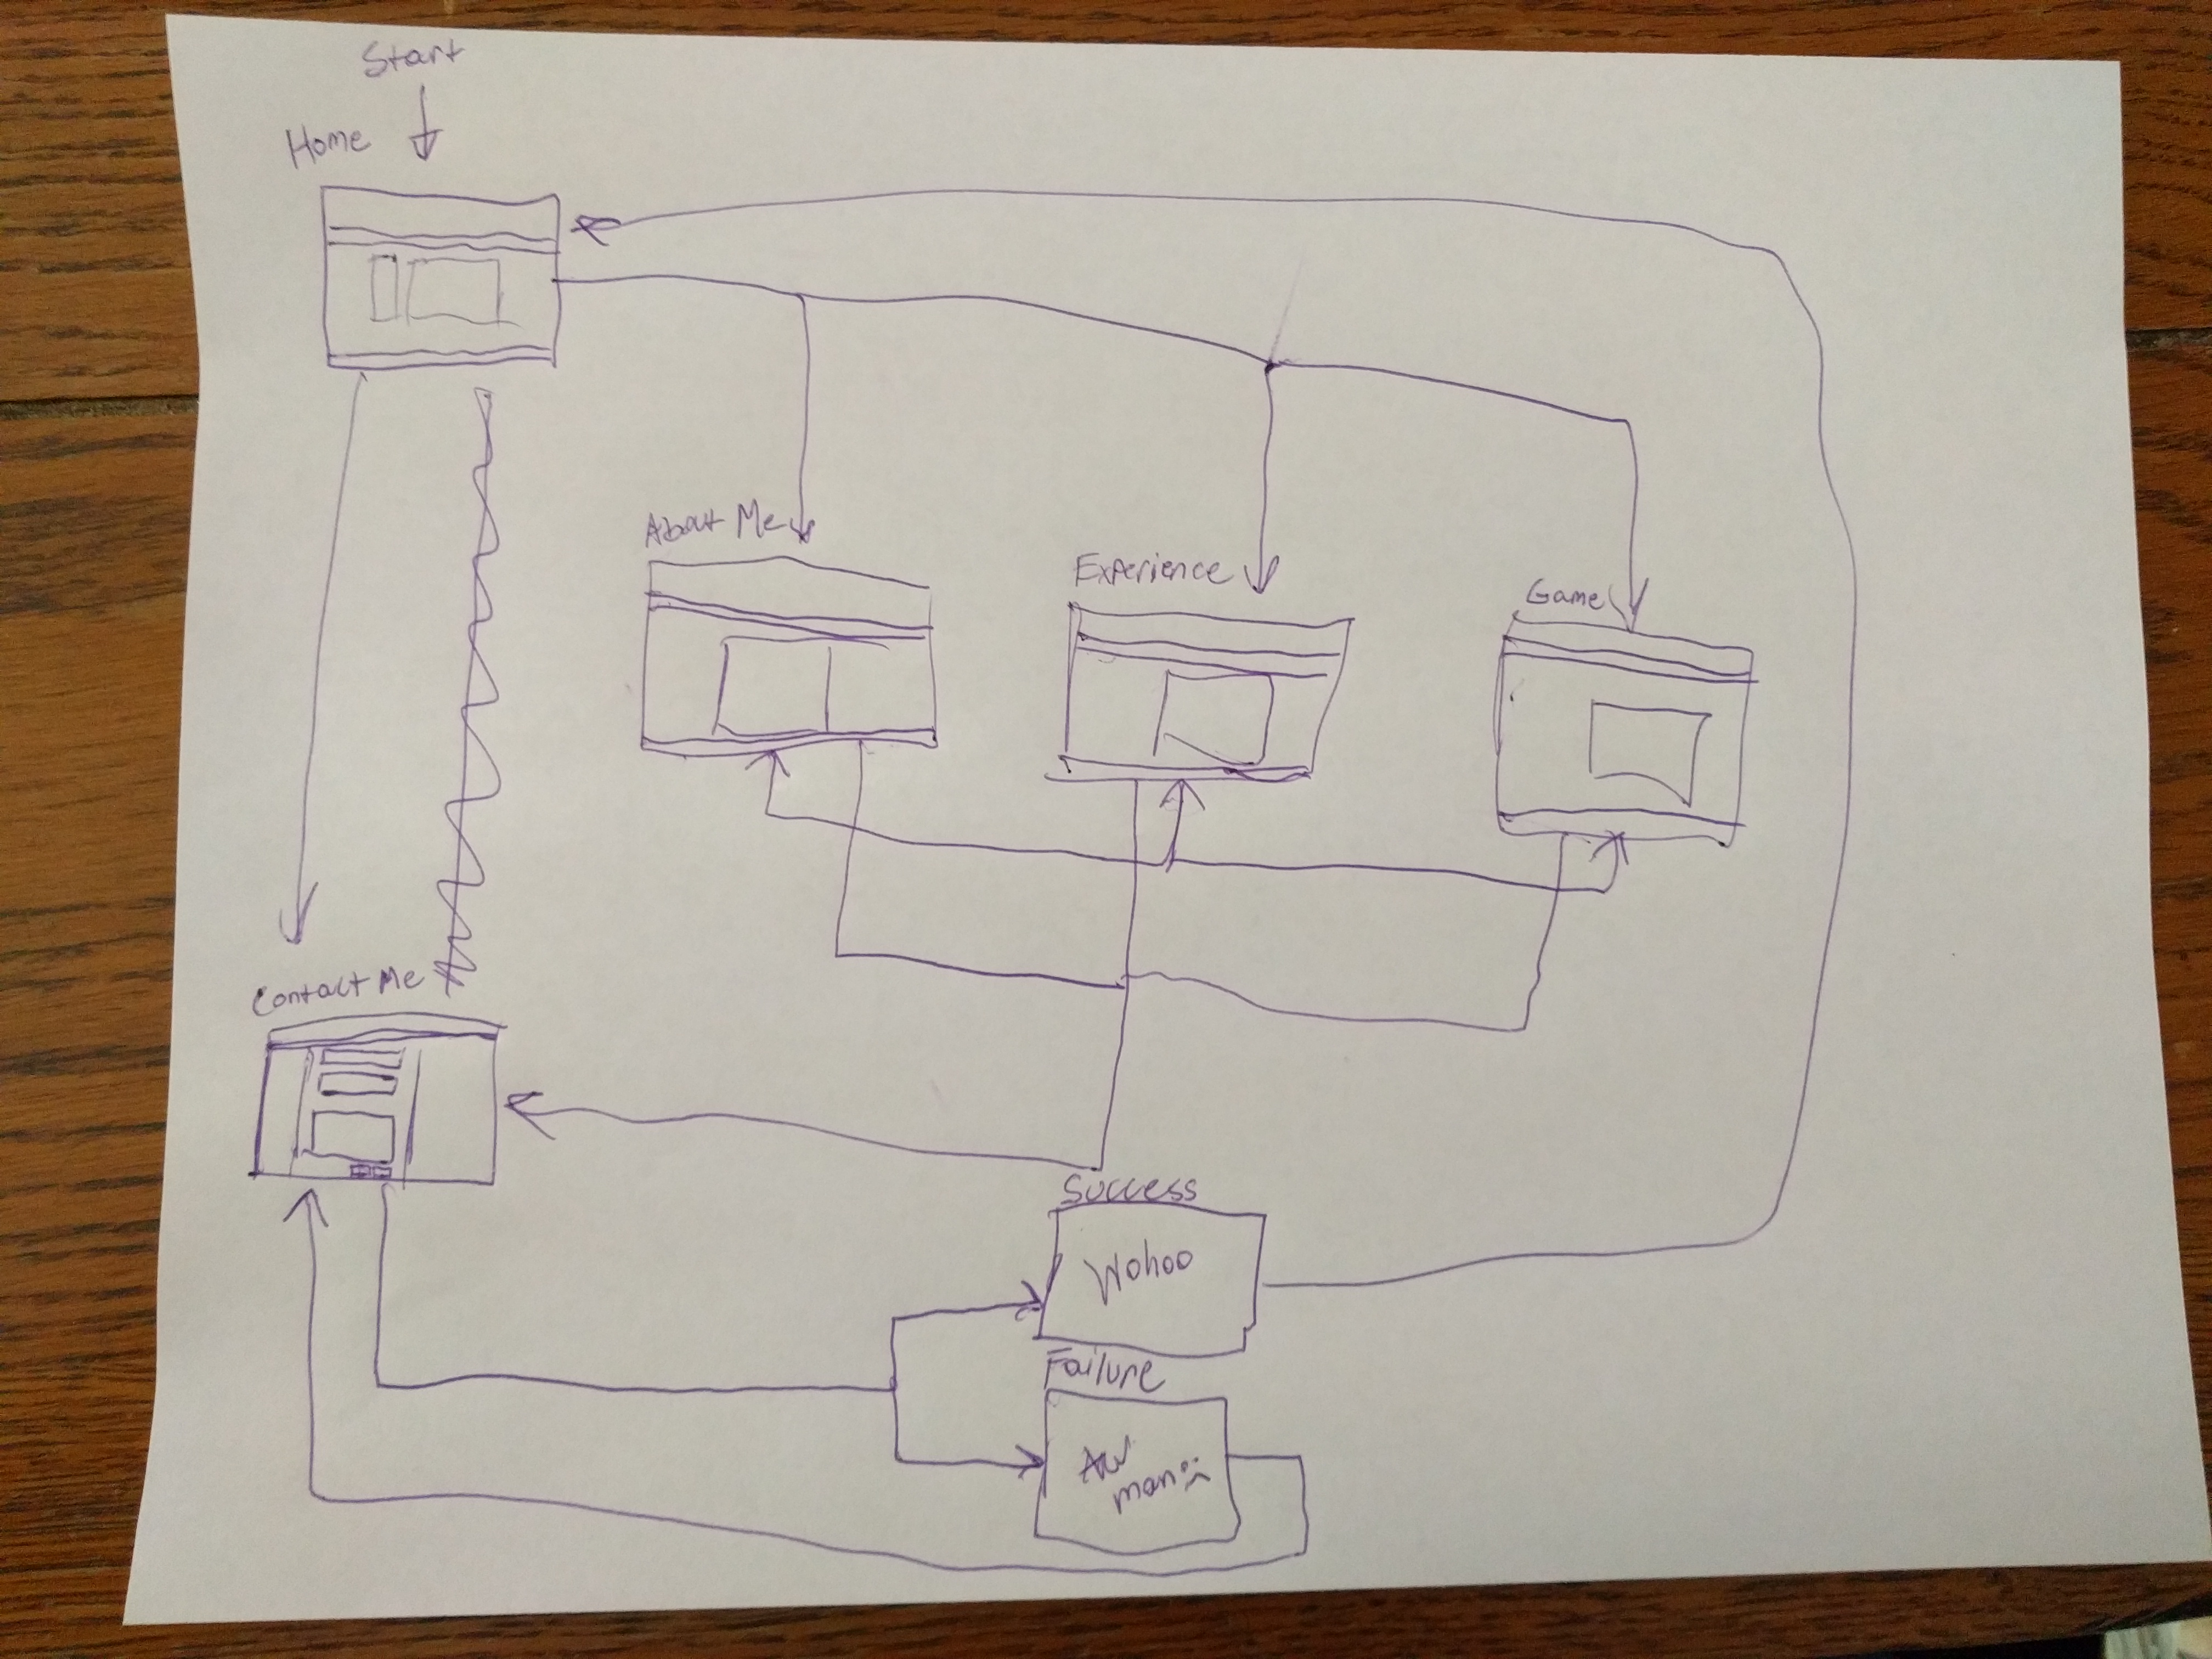 Start
Home
About Me
Experience
Game
Contact Me
Success
Wohoo
Failure
Aw
man :(